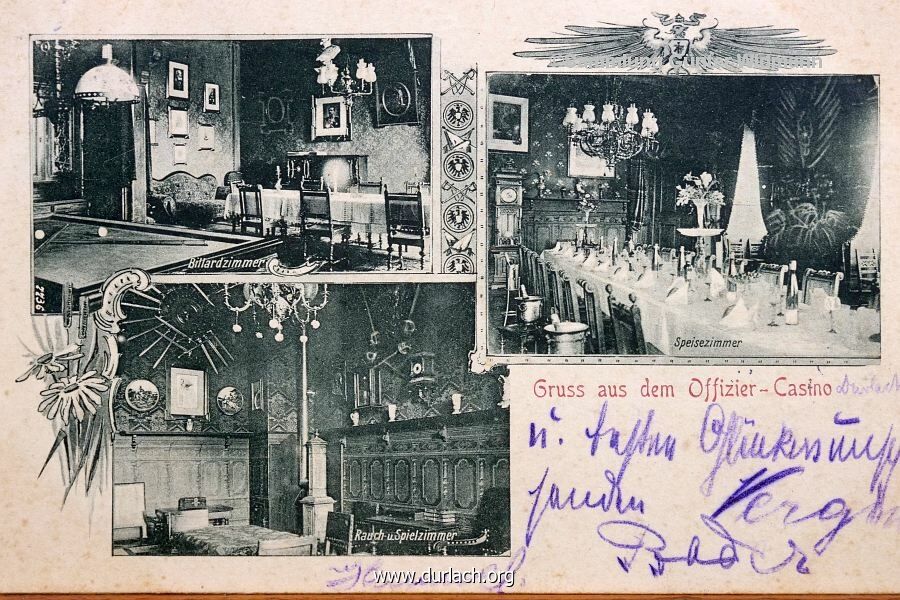 Billardzimmer
7236
Speisezimmer
Rauch u. Spielzimmer
Gruss aus dem Offizier-Casino Durlach
u. besten Glückwunsch
senden
www.durlach.org